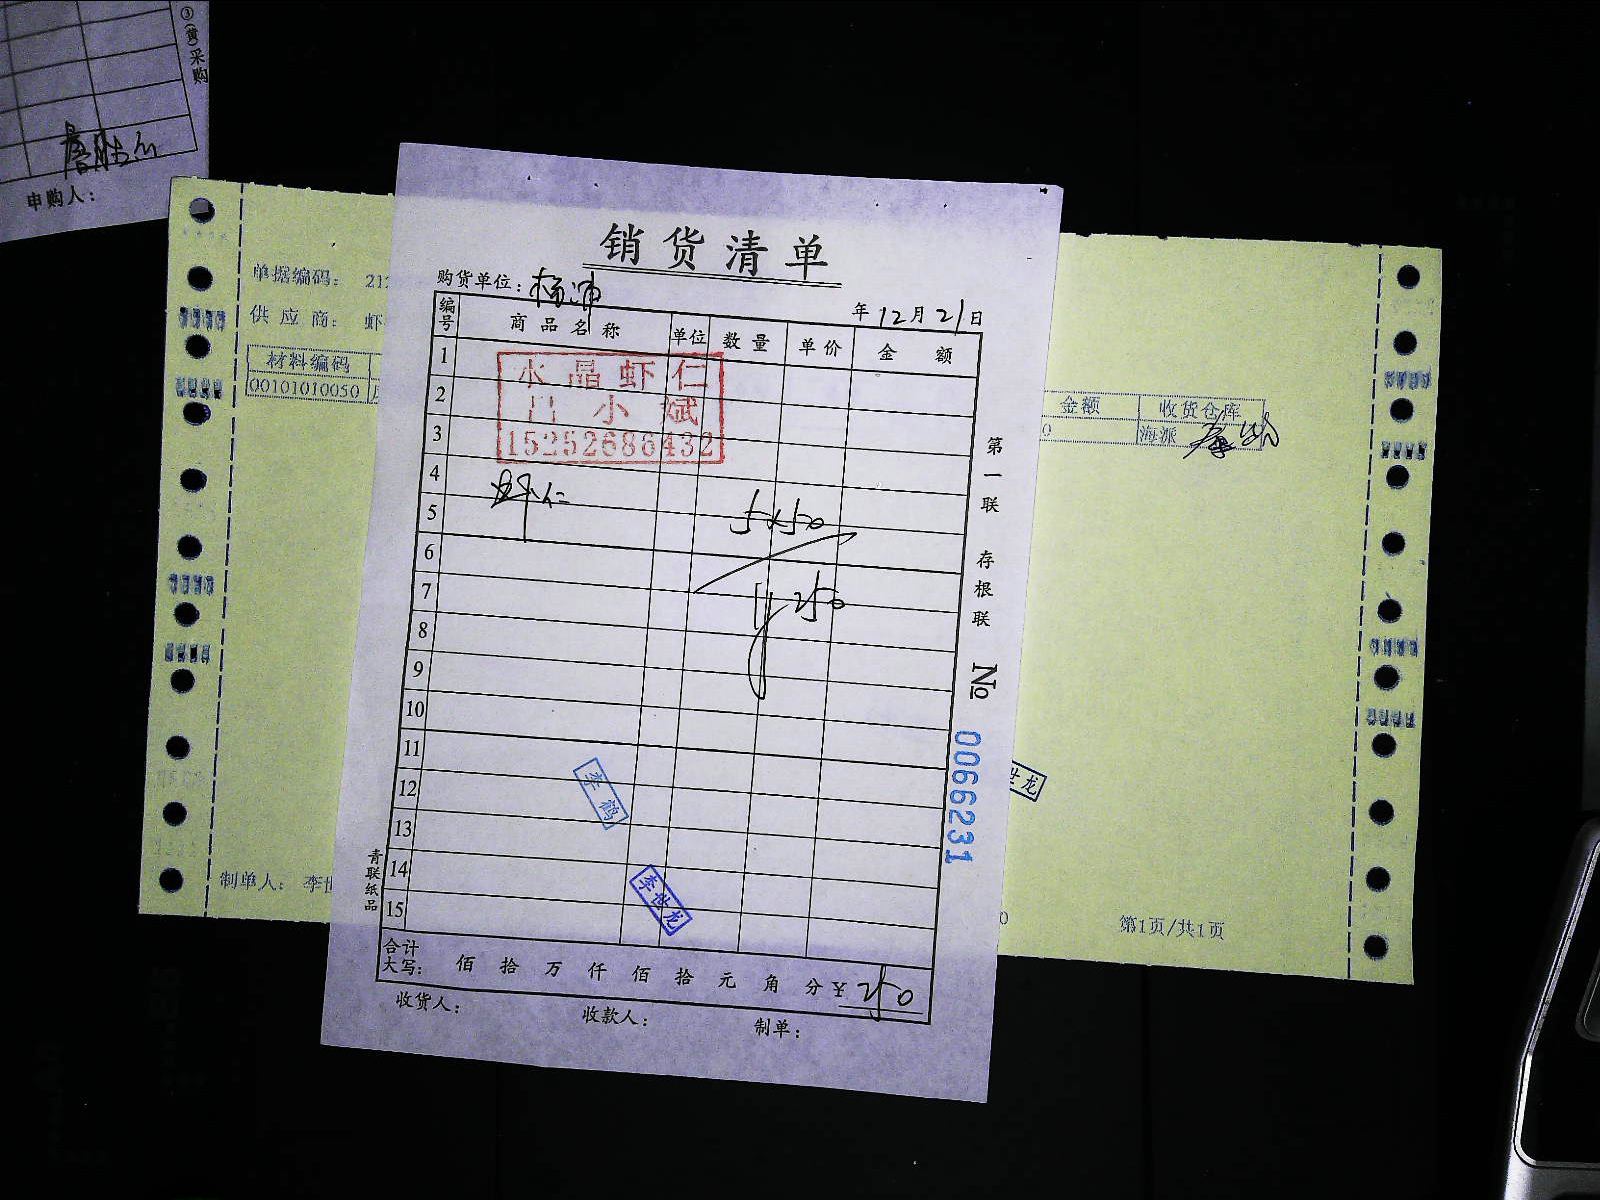 ③(黄)采购
申购人：
单据编码： 212
供 应 商： 虾
材料编码
00101010050
金额 收货仓库
0 海派
制单人： 李世
第1页/共1页
世龙
销货清单
购货单位：杨浦
年12月21日
编号 商品名称 单位 数量 单价 金额
1
2
3
4
5
6
7
8
9
10
11
12
13
14
15
水晶虾仁
吕小斌
15252686432
虾仁 5×50
250
李鹤
李世龙
第一联 存根联
№ 0066231
青联纸品
合计大写： 佰 拾 万 仟 佰 拾 元 角 分 ¥250
收货人： 收款人： 制单：